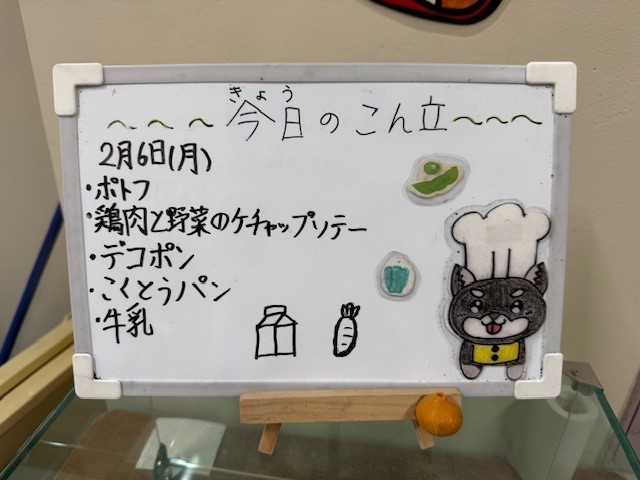 きょう
～～～今日のこん立～～～
2月6日(月)
・ポトフ
・鶏肉と野菜のケチャップソテー
・デコポン
・こくとうパン
・牛乳